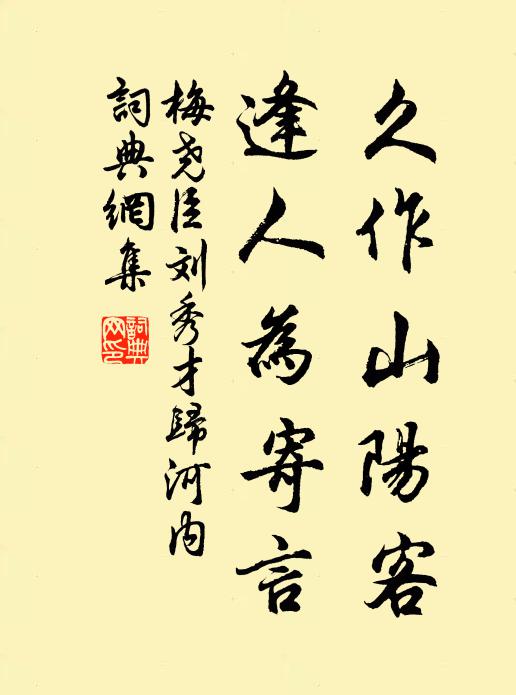 久作山陽客
逢人為寄言
梅尧臣刘秀才歸河内
詞典網集
詞典网印